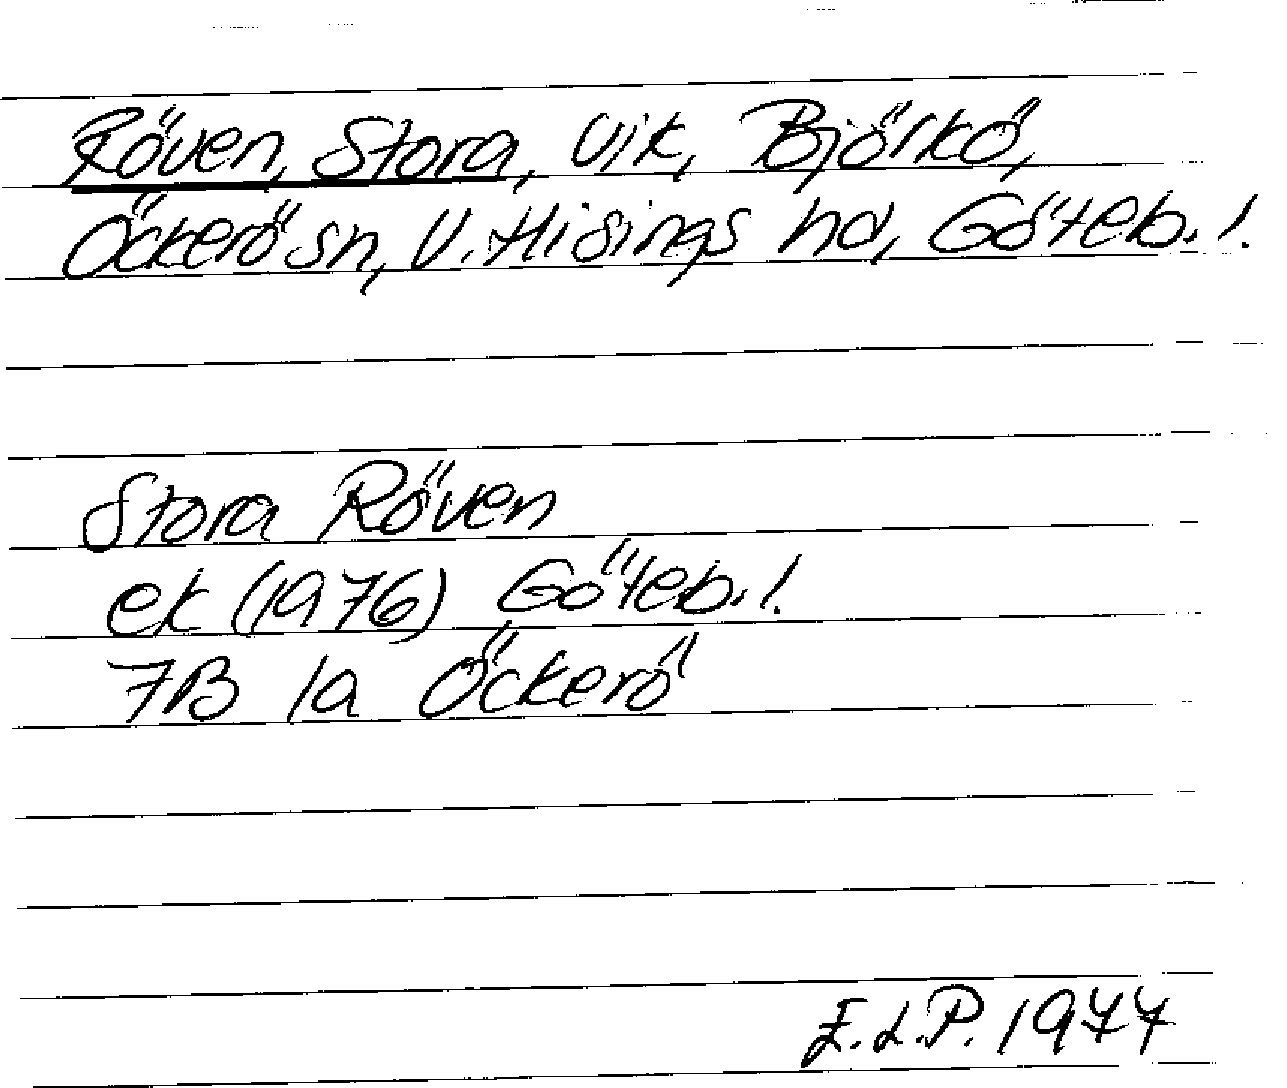 Röven, Stora, vik, Björkö,
Öckerö sn, V. Hisings hd, Göteb. l.
Stora Röven
ek (1976) Göteb. l.
7B 1a Öckerö
E.L.P. 1977